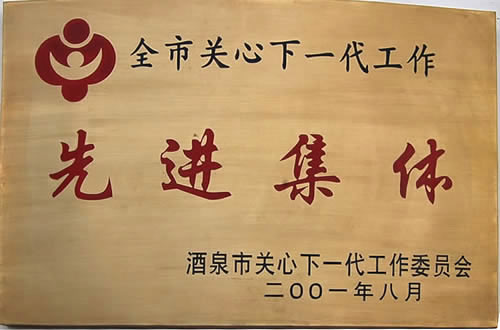 全市关心下一代工作
先进集体
酒泉市关心下一代工作委员会
二〇〇一年八月